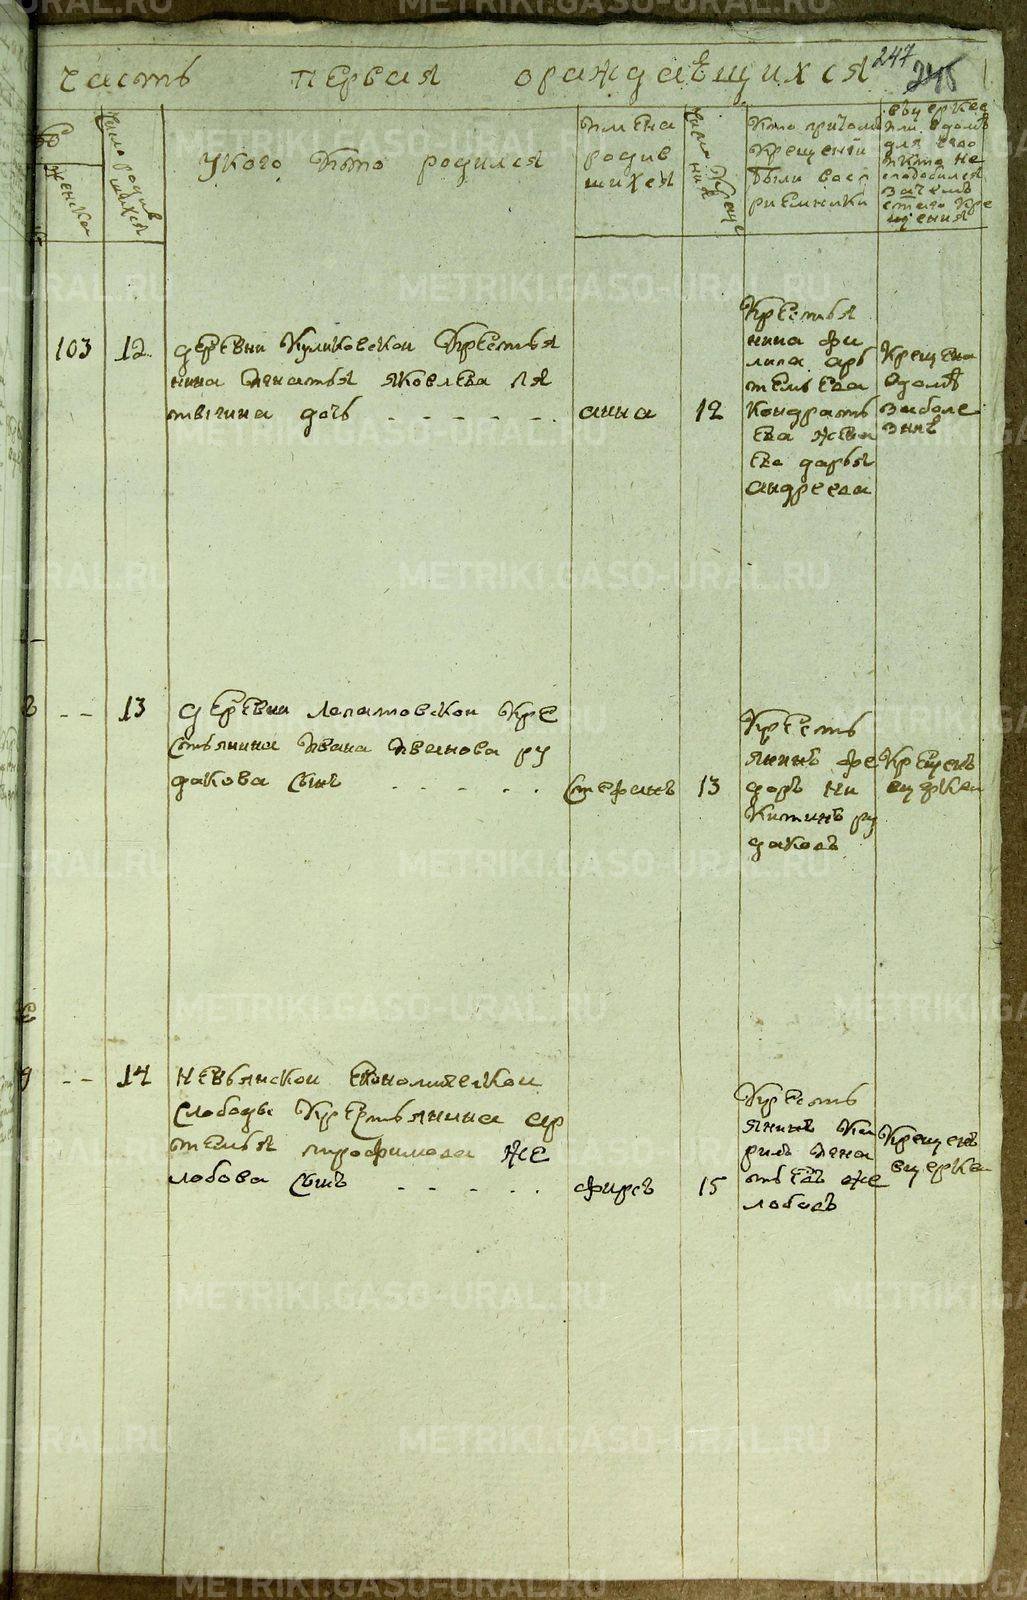 часть первая ораждаѣщихся 247
245
женска
число родив
шихся
укого кто родился
имена
родив
шихся
число креще
ния
кто притом
крещении
были восп
риемники
въцеркве
или вдомѣ
для чего
икто не
сподобился
зачемъ
стаго кре
щения
103 12 деревни Куликовской Крестья
нина Игнатья яковлева ля
пчина дочь - - - - - - анна 12
Крестья
нина фи
липа арт
темьева
Кондрать
ева жена
ево дарья
андреева
Крещена
вдомѣ
заболе
знѣ
-- 13 деревни лопатовской Кре
стьянина Ивана Иванова ру
дакова сынъ - - - - - Стефанъ 13
Кресть
янинъ фе
доръ ни
Китинъ ру
даковъ
Крещенъ
вцеркви
9 -- 14 невьянской Економической
слободы Крестьянина ар
темья трофимова же
лобова сынъ - - - - - фирсъ 15
Кресть
янинъ Ки
рилъ Игна
тьевъ же
лобовъ
Крещенъ
вцеркви
METRIKI.GASO-URAL.RU